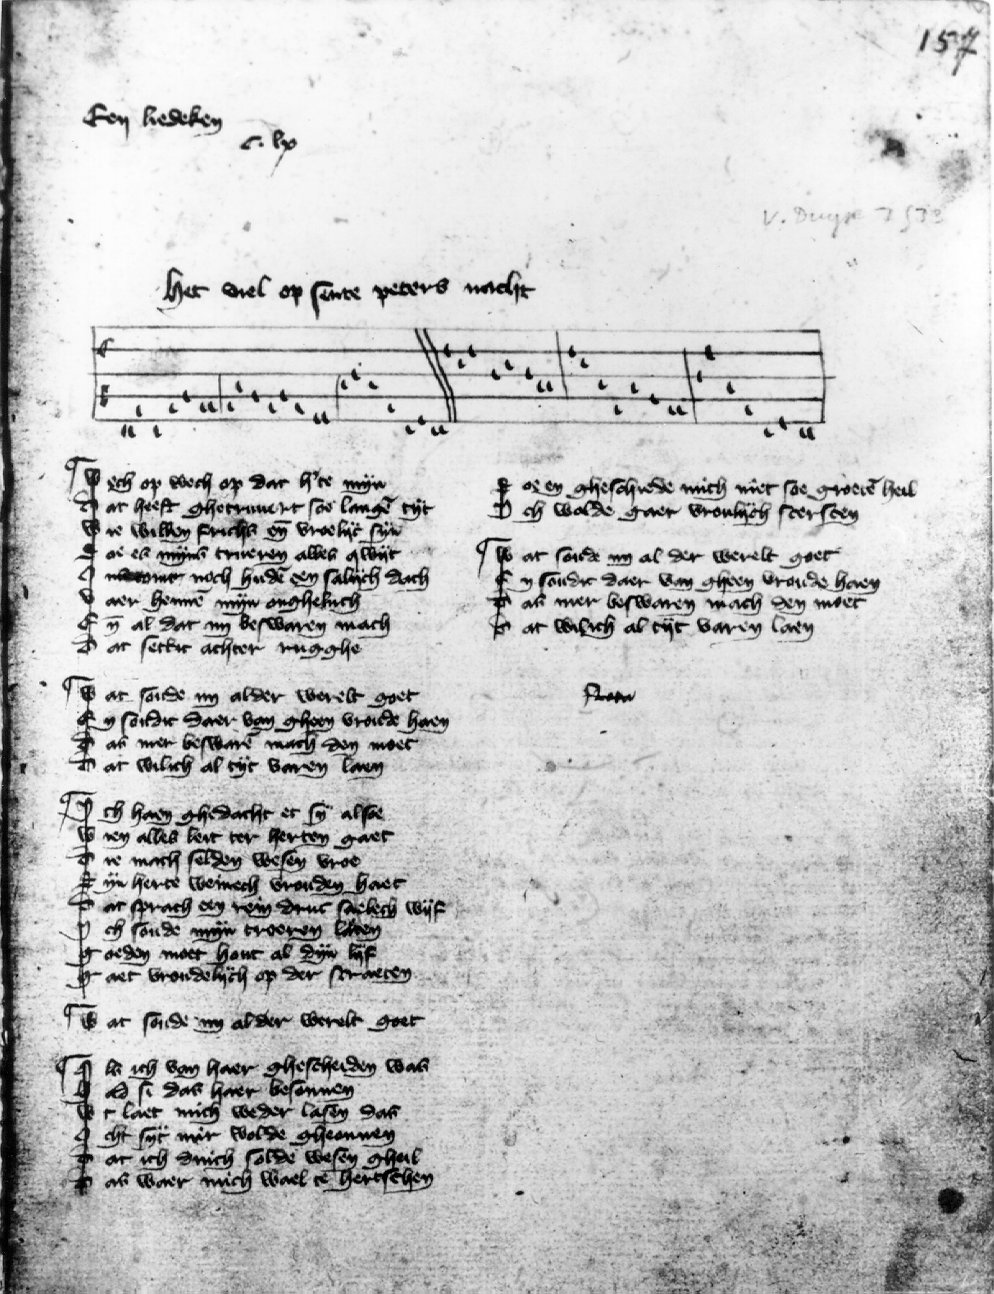 157
Een liedeken
c. lx
v. Duyse
Het viel op sente peters nacht
Wech op wech op dat h'te mijn
Dat heeft ghetruuert soe langē tijt
Wie willen frichs eñ vroelijc sijn
Hoe es mijns trueren alles qwijt
noch hudē een salijch dach
Daer hennē mijn ongheluch
Eñ al dat mj beswaren mach
Dat settic achter rugghe
Wat soude mj alder werelt goet
En soudic daer van gheen vroude haen
Das mer beswarē mach den moet
Dat wilich al tijt varen laen
Ich haen ghedacht et sij alsoe
Wien alles leit ter herten gaet
Die mach selden wesen vroe
Mijn herte weinech vrouden haet
Dat sprach een rein druc saelech wijf
Ich soude mijn troeren laten
Goeden moet hout al dijn lijf
Gaet vroudelijch op der straeten
Wat soude mj alder werelt goet
Als ich van haer ghescheiden was
si das haer besonnen
laet mich weder lasen das
Icht sijt mir wolde gheonnen
Dat ich druch solde wesen gheil
Das waer mich wael te hertschen
Noeen gheschiede mich niet soe groetē heil
Ich wolde gaer vroulijch stersten
Wat soude mj al der werelt goet
En soudic daer van gheen vroude haen
Das mer beswaren mach den moet
Dat wilich al tijt varen laen